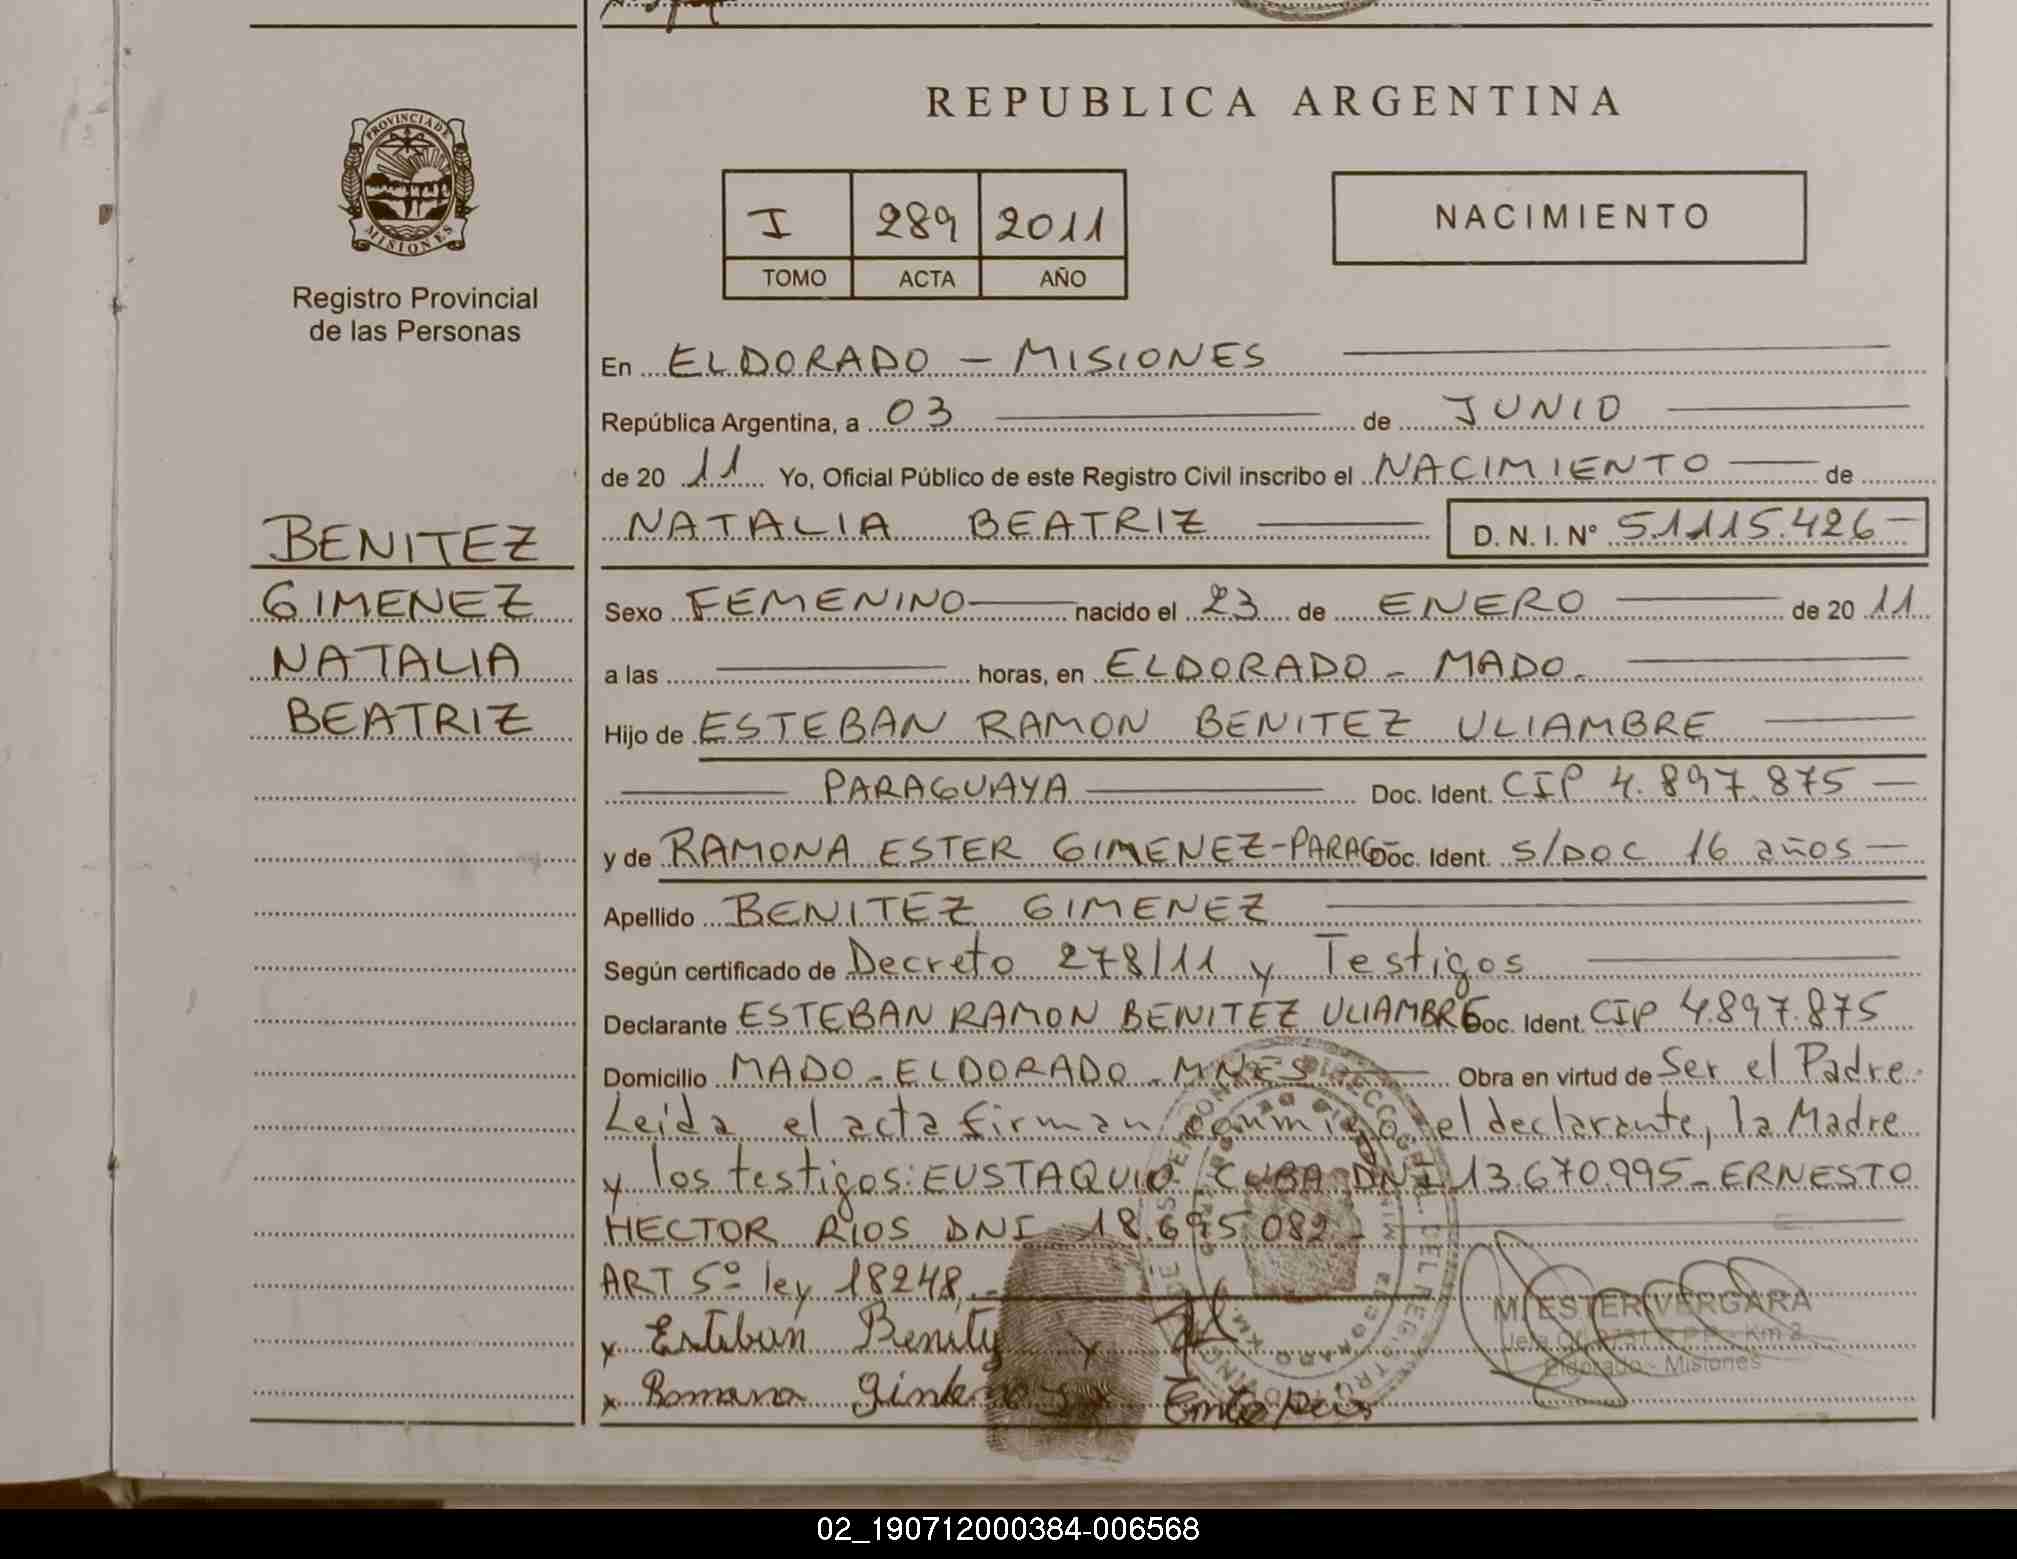 REPUBLICA ARGENTINA
PROVINCIA DE MISIONES
Registro Provincial
de las Personas
I 289 2011
TOMO ACTA AÑO
NACIMIENTO
BENITEZ
GIMENEZ
NATALIA
BEATRIZ
En ELDORADO - MISIONES
República Argentina, a 03 de JUNIO
de 20 11 Yo, Oficial Público de este Registro Civil inscribo el NACIMIENTO de
NATALIA BEATRIZ D. N. I. Nº 51115.426
Sexo FEMENINO nacido el 23 de ENERO de 20 11
a las horas, en ELDORADO - MADO.
Hijo de ESTEBAN RAMON BENITEZ ULIAMBRE
PARAGUAYA Doc. Ident. CIP 4.897.875
y de RAMONA ESTER GIMENEZ-PARAG Doc. Ident. S/DOC 16 años
Apellido BENITEZ GIMENEZ
Según certificado de Decreto 278/11 y Testigos
Declarante ESTEBAN RAMON BENITEZ ULIAMBRE Doc. Ident. CIP 4.897.875
Domicilio MADO - ELDORADO - MNES Obra en virtud de Ser el Padre.
Leida el acta firman conmigo el declarante, la Madre
y los testigos: EUSTAQUIO CUBA DNI 13.670.995 - ERNESTO
HECTOR RIOS DNI 18.695.082 -
ART 5º ley 18248. -
x Esteban Benitz x
x Romana
M. ESTER VERGARA
Eldorado - Misiones
02_190712000384-006568